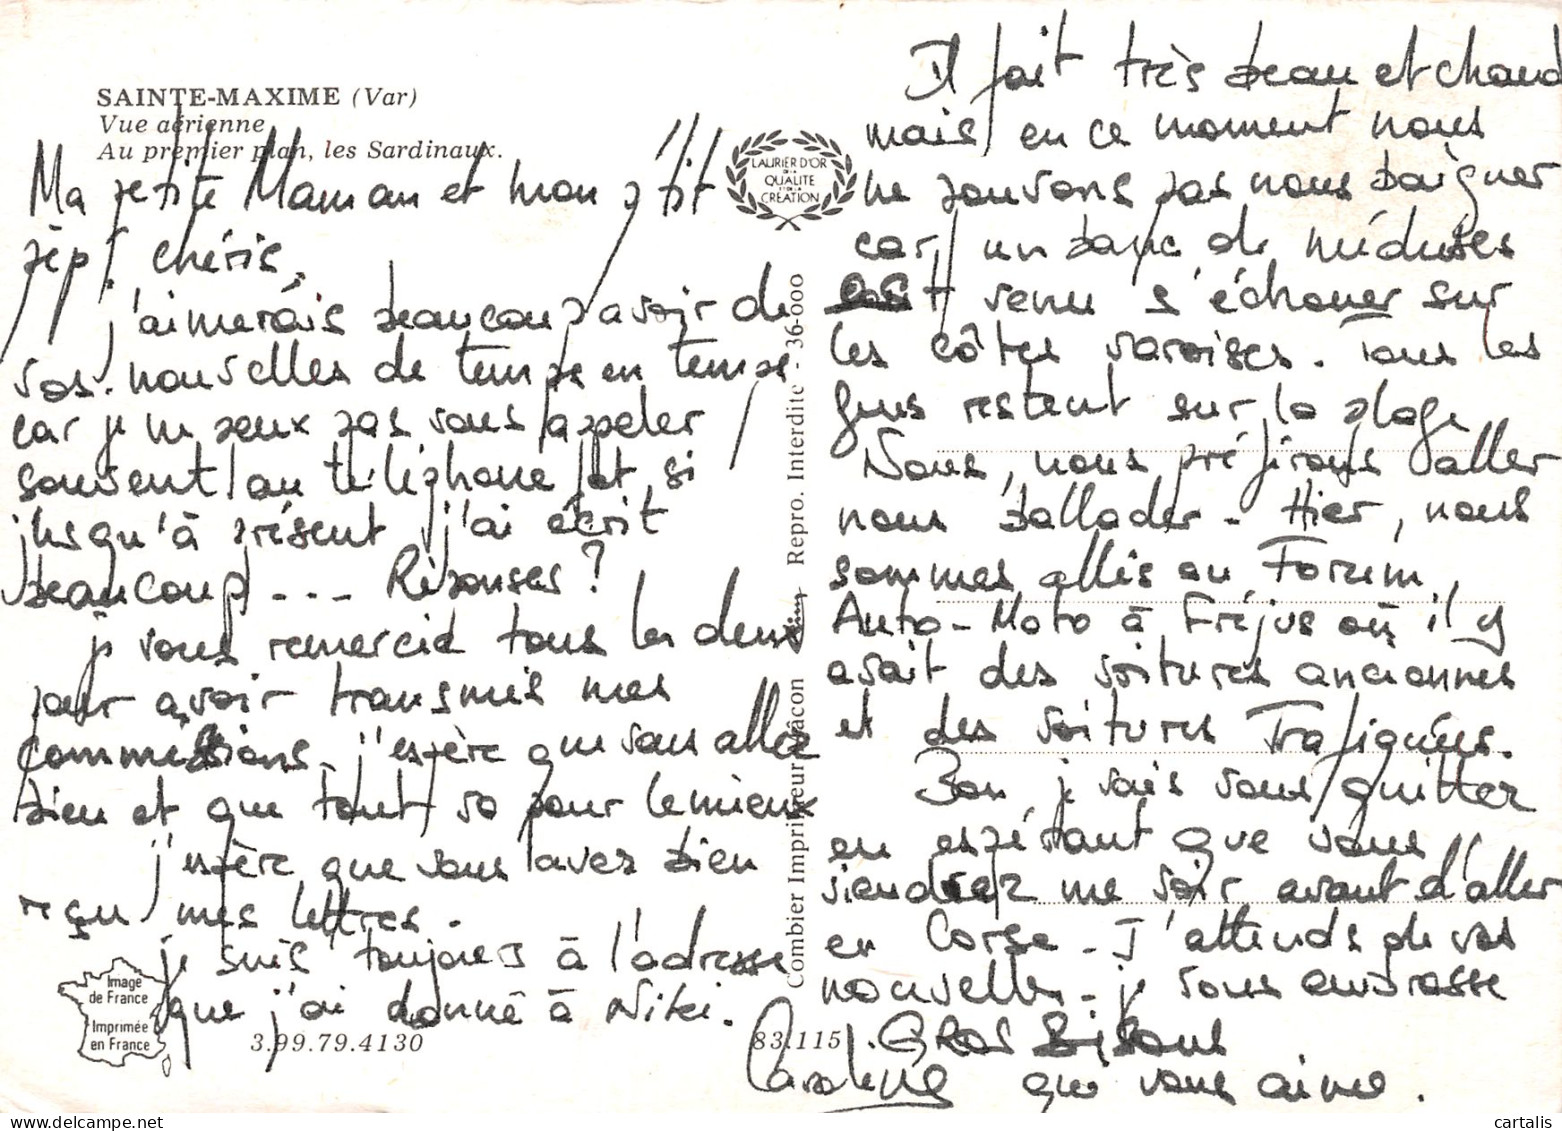 SAINTE-MAXIME (Var)
Vue aérienne
Au premier plan, les Sardinaux.
Ma petite Maman et mon p'tit
chéris,
j'aimerais beaucoup avoir de
vos nouvelles de temps en temps
car je ne peux pas vous appeler
souvent au téléphone et si
jusqu'à présent j'ai écrit
beaucoup --- Réponses?
je vous remercie tous les deux
pour avoir transmis mes
commissions. j'espère que vous allez
bien et que tout va pour le mieux
j'espère que vous avez bien
reçu mes lettres.
je suis toujours à l'adresse
que j'ai donné à Niki.
Image
de France
Imprimée
en France
3.99.79.4130
LAURIER D'OR
DE LA
QUALITE
ET DE LA
CREATION
Combier Imprimeur Mâcon
Repro. Interdite - 36-000
83.115
Il fait très beau et chaud
mais en ce moment nous
ne pouvons pas nous baigner
car un banc de méduses
est venu s'échouer sur
les côtes varoises. Tous les
gens restent sur la plage
Nous, nous préférons aller
nous ballader. Hier, nous
sommes allés au Forum
Auto-Moto à Fréjus où il y
avait des voitures anciennes
et des voitures Trafiquées.
Bon, je vais vous quitter
en espérant que vous
viendrez me voir avant d'aller
en Corse. J'attends de vos
nouvelles. je vous embrasse
GROS Bisous
Caroline qui vous aime.